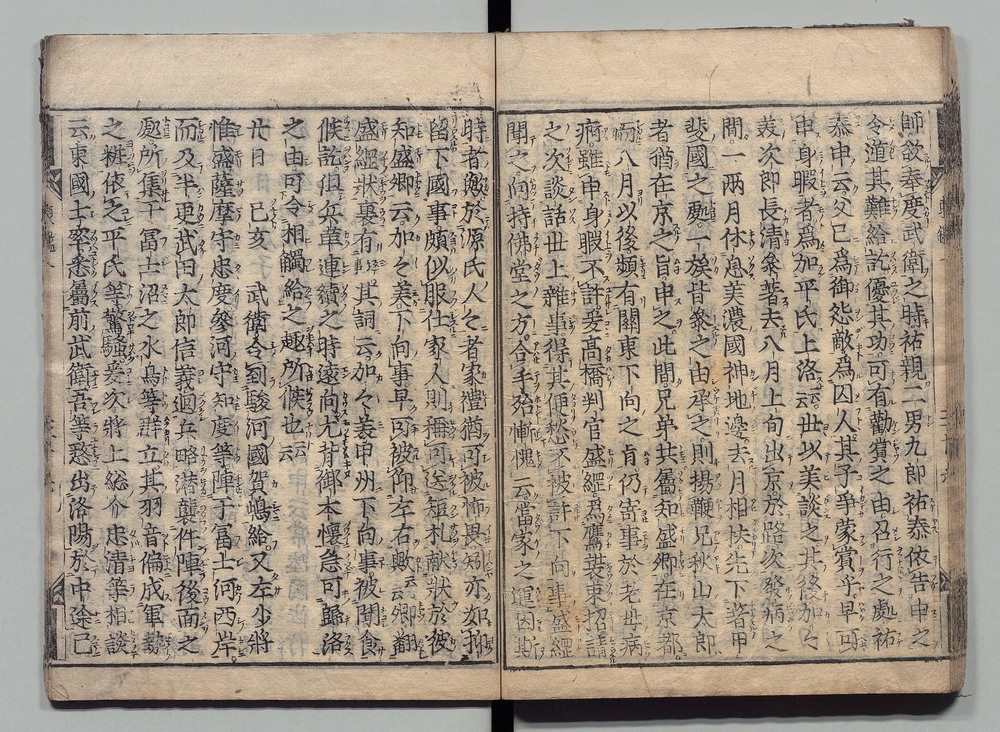 師欲奉度武衛之時祐親二男九郎祐泰依告申之
令遁其難給訖優其功可有勸賞之由召行之處祐
泰申云父已爲御怨敵爲囚人其子爭蒙賞乎早可
申身暇者爲加平氏上洛云云世以美談之其後加々
美次郎長清參著去八月上旬出京於路次發病之
間一兩月休息美濃國神地邊去月相扶先下著甲
斐國之處一族皆參之由承之則揚鞭兄秋山太郎
者猶在京之旨申之此間兄弟共屬知盛卿在京都
而八月以後頻有關東下向之志仍寄事於老母病
痾雖申身暇不許爰高橋判官盛綱爲鷹裝束招請
之次談話世上雜事得其便愁不被許下向事盛綱
聞之向持佛堂之方合手殆慚愧云當家之運因斯
時者歟於源氏人々者家禮猶可被怖畏矧亦如抑
留下國事頗似服仕家人則稱可送短札獻狀於彼
知盛卿云加々美下向事早可被仰左右歟云云卿翻
盛綱狀裏有其詞云加々美甲州下向事被聞食
候訖但兵革連續之時遠向尤背御本懷急可歸洛
之由可令相觸給之趣所候也云云
廿日己亥武衛令到駿河國賀嶋給又左少將
惟盛薩摩守忠度參河守知度等陣于富士河西岸
而及半更武田太郎信義廻兵略潜襲件陣後面之
處所集于富士沼之水鳥等群立其羽音偏成軍勢
之粧依之平氏等驚騷爰次將上総介忠清等相談
云東國士卒悉屬前武衛吾等憖出洛陽於中途已